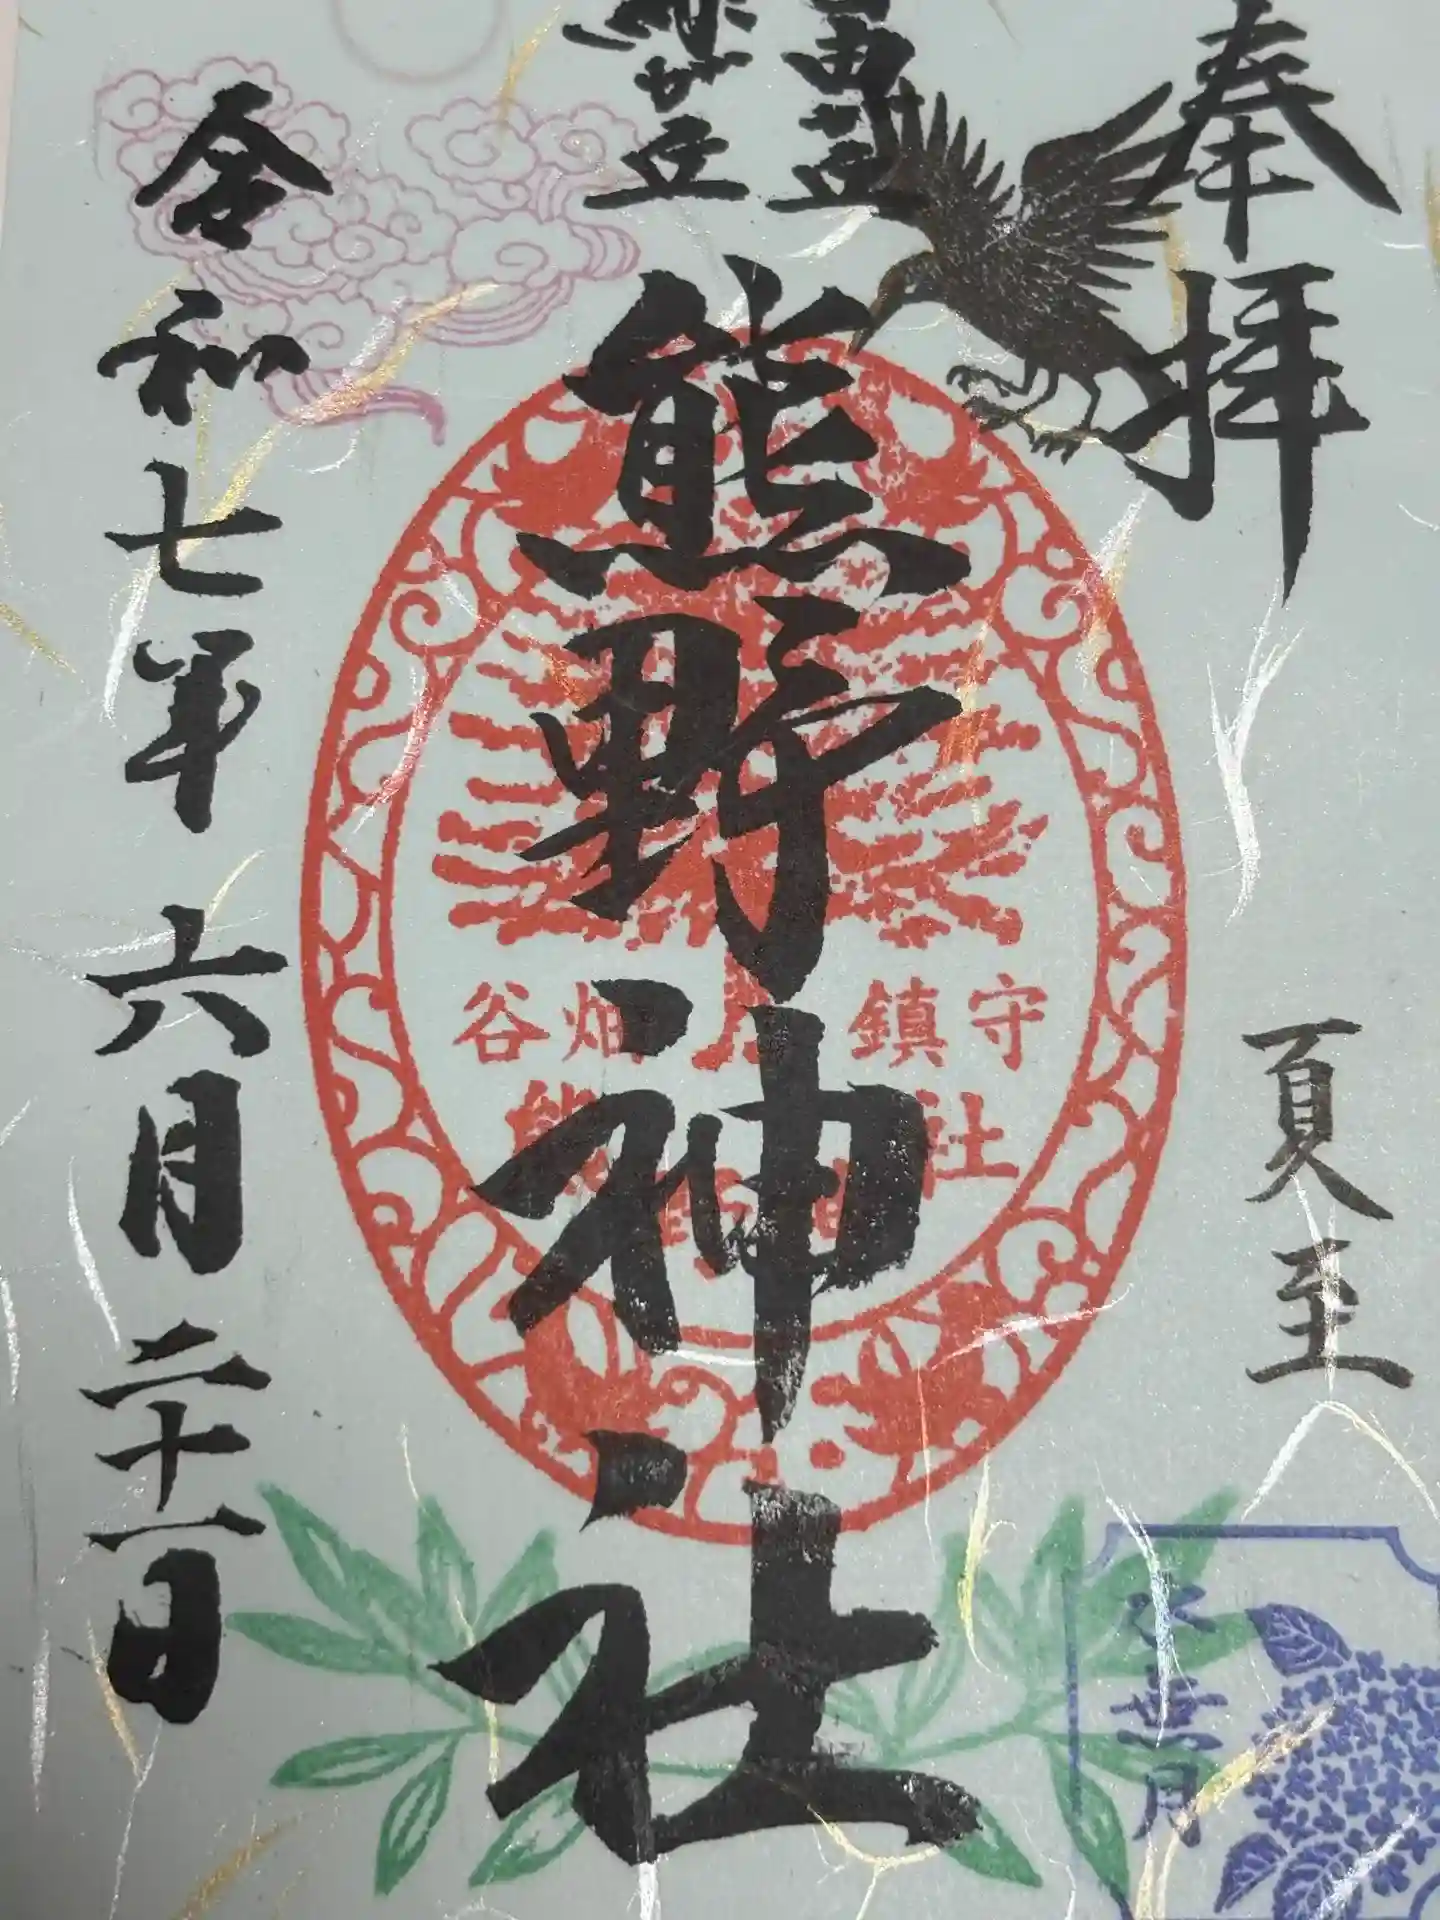 奉拝
夏至
水無月
緑が丘
熊野神社
谷畑 鎮守
熊 社
令和七年 六月二十一日